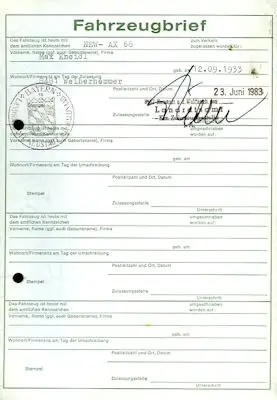 Fahrzeugbrief
Das Fahrzeug ist heute mit
dem amtlichen Kennzeichen NEW- AX 66 zum Verkehr
zugelassen worden für:
Vorname, Name (ggf. auch Geburtsname), Firma
Max
geb. am 12.09.1933
Wohnort/Firmensitz am Tag der Zulassung
Postleitzahl und Ort, Datum
23. Juni 1983
BAYERN
Landratsamt
Zulassungsstelle
Das Fahrzeug ist heute mit
dem amtlichen Kennzeichen umgeschrieben
worden auf:
Vorname, Name (ggf. auch Geburtsname), Firma
geb. am
Wohnort/Firmensitz am Tag der Umschreibung
Postleitzahl und Ort, Datum
Stempel
Zulassungsstelle
Unterschrift
Das Fahrzeug ist heute mit
dem amtlichen Kennzeichen umgeschrieben
worden auf:
Vorname, Name (ggf. auch Geburtsname), Firma
geb. am
Wohnort/Firmensitz am Tag der Umschreibung
Postleitzahl und Ort, Datum
Stempel
Zulassungsstelle
Unterschrift
Das Fahrzeug ist heute mit
dem amtlichen Kennzeichen umgeschrieben
worden auf:
Vorname, Name (ggf. auch Geburtsname), Firma
geb. am
Wohnort/Firmensitz am Tag der Umschreibung
Postleitzahl und Ort, Datum
Stempel
Zulassungsstelle
Unterschrift